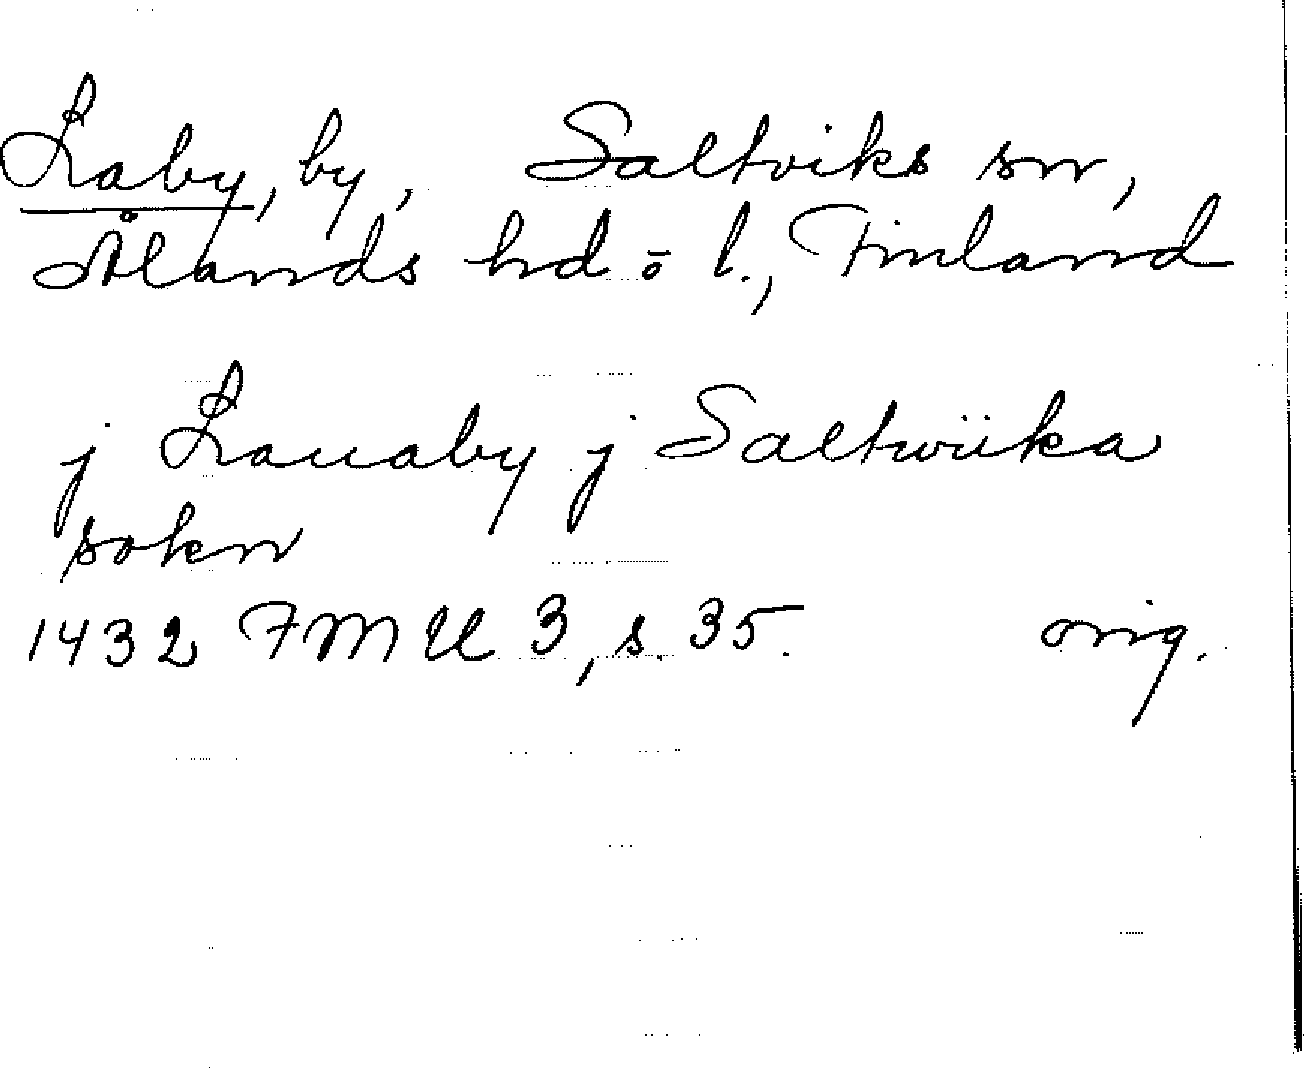 Laby, by, Saltviks sn,
Ålands hd o l., Finland
j Lauaby j Saltwiika
sokn
1432 FMU 3, s. 35. orig.